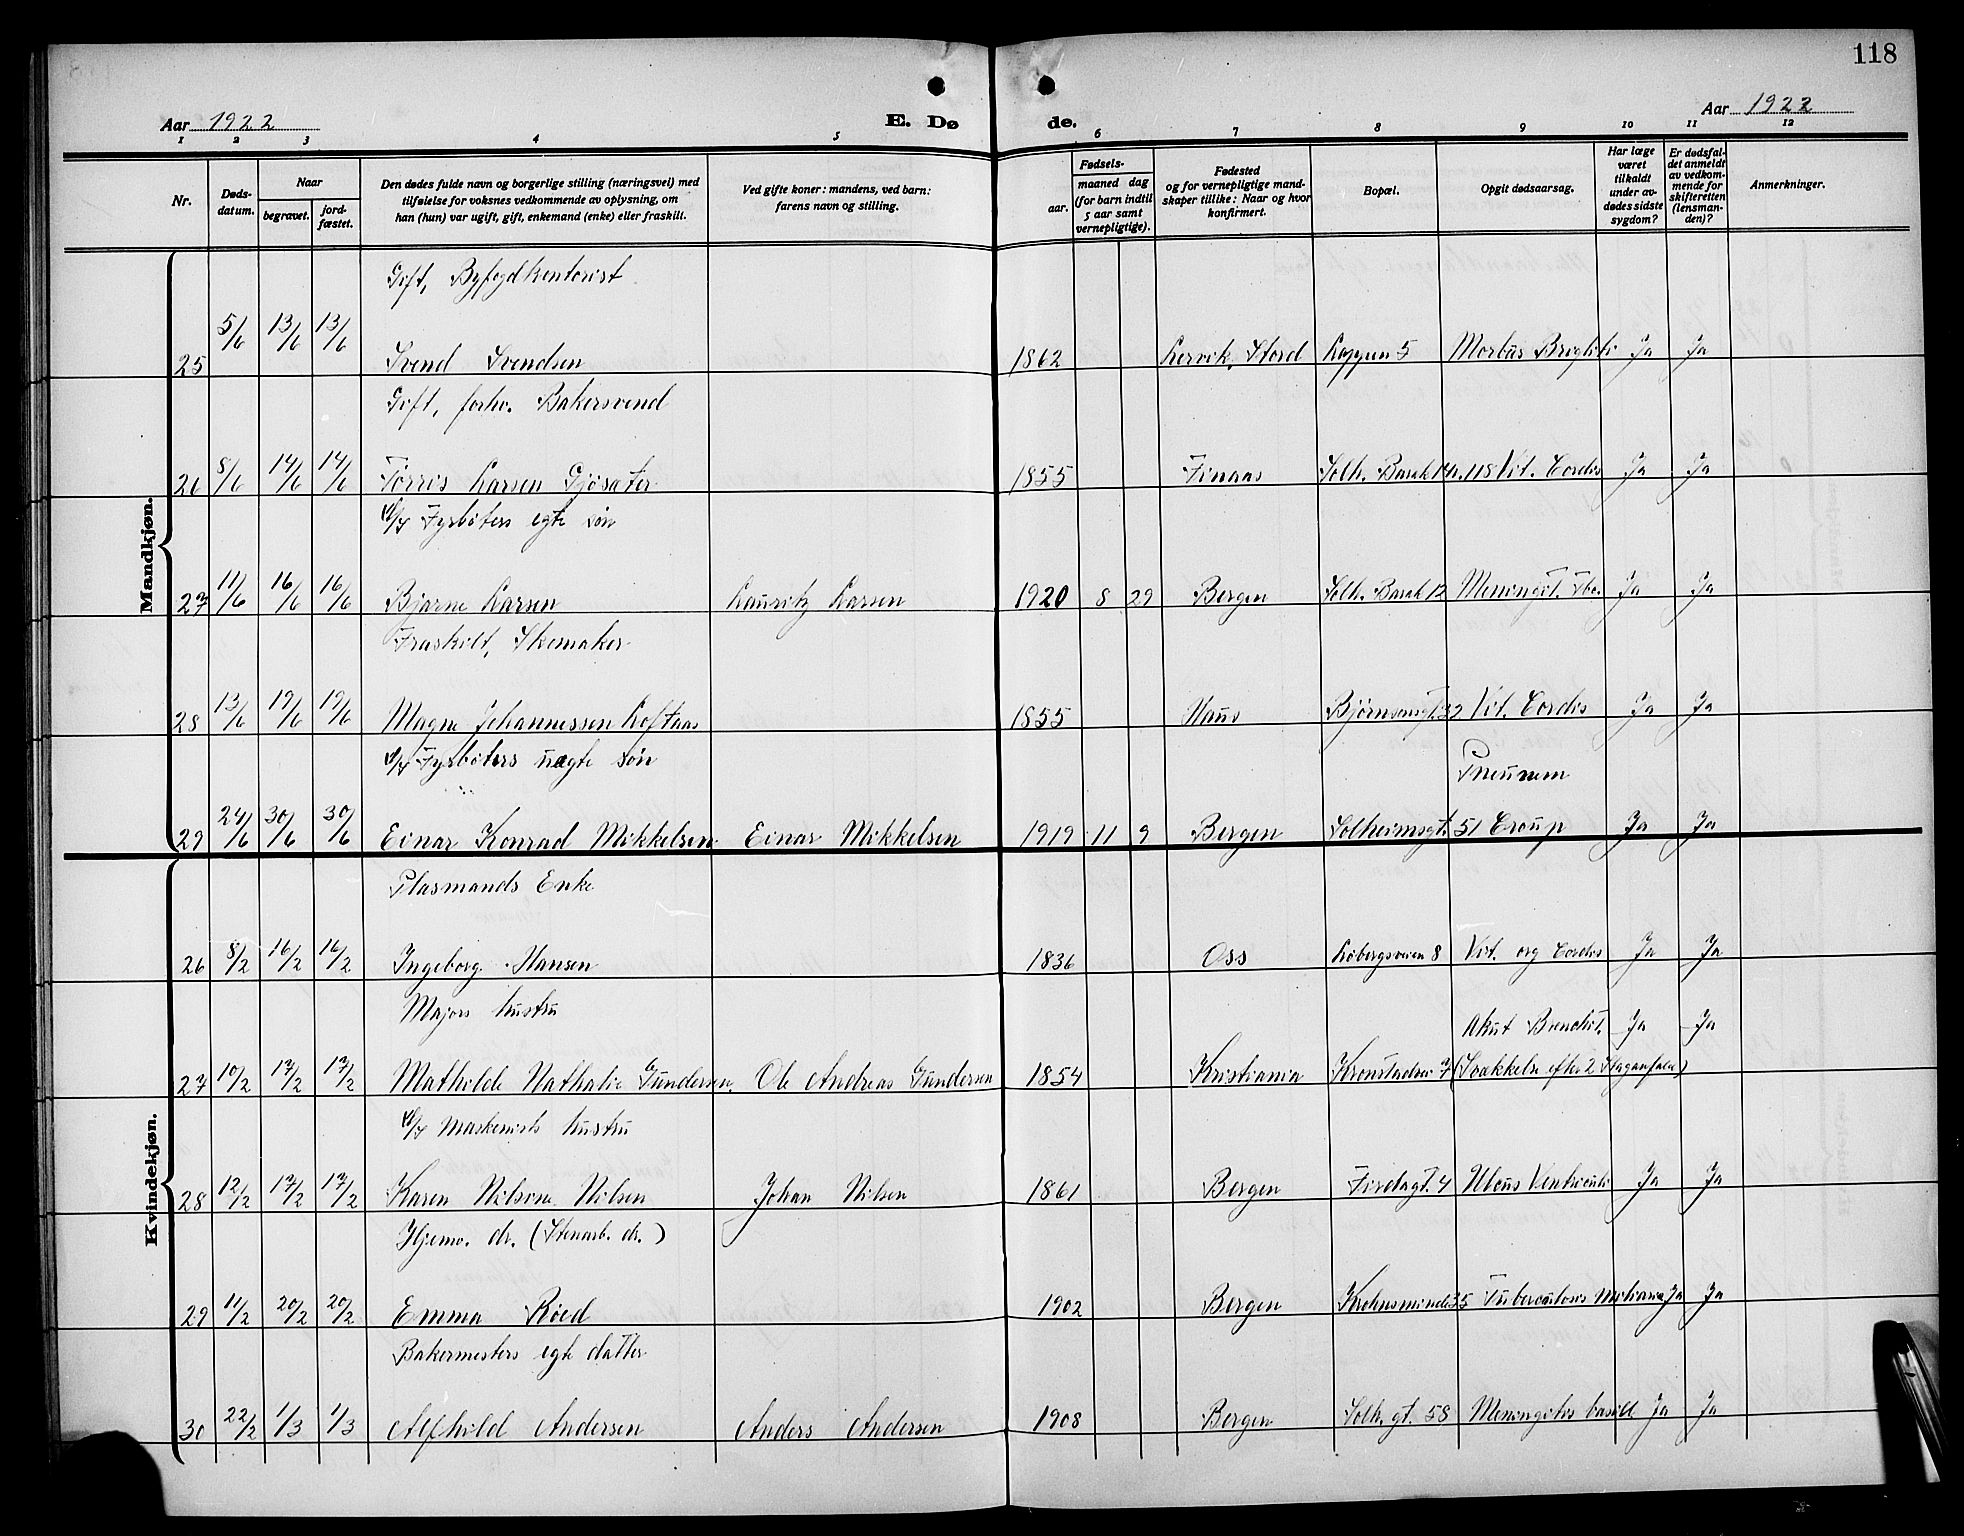 118
Aar 1922
E. Dø
de.
Aar 1922
1 2 3 4 5 6 7 8 9 10 11 12
Nr.
Døds-
datum.
Naar
begravet.
jord-
fæstet.
Den dødes fulde navn og borgerlige stilling (næringsvei) med
tilføielse for voksnes vedkommende av oplysning, om
han (hun) var ugift, gift, enkemand (enke) eller fraskilt.
Ved gifte koner: mandens, ved barn:
farens navn og stilling.
Fødsels-
aar.
maaned dag
(for barn indtil
5 aar samt
vernepligtige).
Fødested
og for vernepligtige mand-
skaper tillike: Naar og hvor
konfirmert.
Bopæl.
Opgit dødsaarsag.
Har læge
været
tilkaldt
under av-
dødes sidste
sygdom?
Er dødsfal-
det anmeldt
av vedkom-
mende for
skifteretten
(lensman-
den)?
Anmerkninger.
Mandkjøn.
Gift, Byfogdkontorist
25 5/6 13/6 13/6 Svend Svendsen 1862 Lervik, Stord 5 Morbus Brigthi Ja Ja
Gift, forhv. Bakersvend
26 8/6 14/6 14/6 Torris Larsen Gjøsæter 1855 Finaas Solh. Barak 14 n. 118 Vit. Cordis Ja Ja
Fyrbøters egte søn
27 11/6 16/6 16/6 Bjarne Larsen Lauritz Larsen 1920 8 29 Bergen Solh. Barak 12 Meningit. Tbc. Ja Ja
Fraskilt, Skomaker
28 13/6 19/6 19/6 Magne Johannessen Loftaas 1855 Haus Bjørnsonsgt. 32 Vit. Cordis Ja Ja
Fyrbøters uægte søn
29 24/6 30/6 30/6 Einar Konrad Mikkelsen Einar Mikkelsen 1919 11 9 Bergen Solheimsgt. 51 Croup Ja Ja
Kvindekjøn.
Plasmands Enke
26 8/2 16/2 16/2 Ingeborg Hansen 1836 Oss Løbergsveien 8 Vit. org Cordis Ja Ja
Majors hustru
Akut Bronchit. Ja Ja
27 10/2 17/2 17/2 Mathilde Nathalie Gundersen. Ole Andreas Gundersen 1854 Kristiania 7 (Svækkelse efter 2 Slaganfald)
Maskinists hustru
28 12/2 17/2 17/2 Karen Nilsine Nilsen Johan Nilsen 1861 Bergen Firdagt. 4 Ulcus Ventriculi Ja Ja
Hjemv. dr. (Stenarb. dr.)
29 11/2 20/2 20/2 Emma Røed 1902 Bergen Krohnsminde 35 Tuberculosis Ja Ja
Bakermesters egte datter
30 22/2 1/3 1/3 Alfhild Andersen Anders Andersen 1908 Bergen Solh. gt. 58 Meningitis basill. Ja Ja